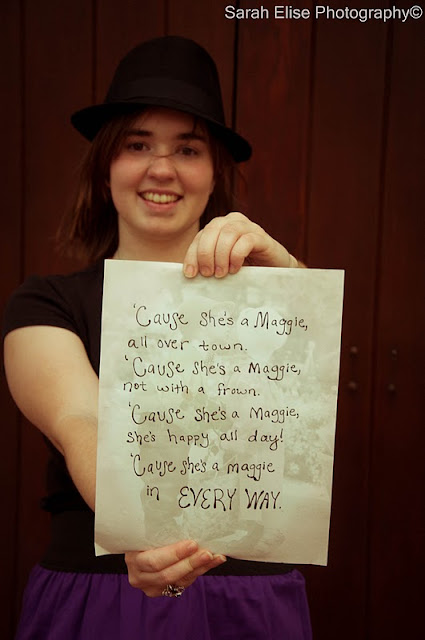 Sarah Elise Photography©
'Cause she's a Maggie,
all over town.
'Cause she's a Maggie,
not with a frown.
'Cause she's a Maggie,
she's happy all day!
'Cause she's a maggie
in EVERY WAY.